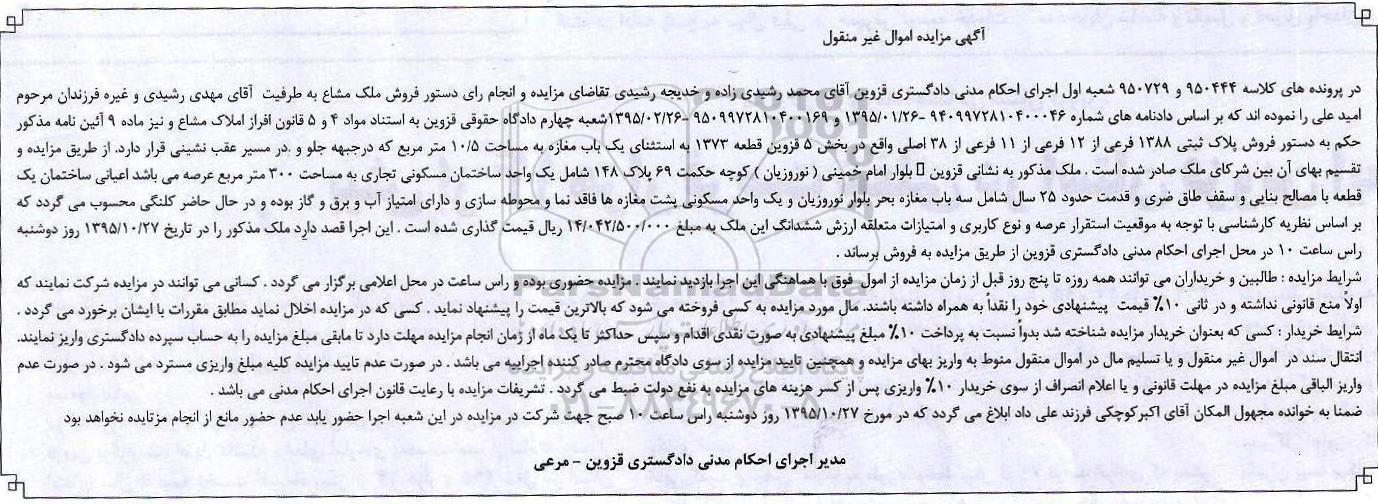 آگهی مزایده اموال غیر منقول
در پرونده های کلاسه ۹۵۰۴۴۴ و ۹۵۰۷۲۹ شعبه اول اجرای احکام مدنی دادگستری قزوین آقای محمد رشیدی زاده و خدیجه رشیدی تقاضای مزایده و انجام رای دستور فروش ملک مشاع به طرفیت آقای مهدی رشیدی و غیره فرزندان مرحوم
امید علی را نموده اند که بر اساس دادنامه های شماره ۹۴۰۹۹۷۲۸۱۰۴۰۰۰۴۶ -۱۳۹۵/۰۱/۲۶ و ۹۵۰۹۹۷۲۸۱۰۴۰۰۱۶۹ -۱۳۹۵/۰۲/۲۶شعبه چهارم دادگاه حقوقی قزوین به استناد مواد ۴ و ۵ قانون افراز املاک مشاع و نیز ماده ۹ آئین نامه مذکور
حکم به دستور فروش پلاک ثبتی ۱۳۸۸ فرعی از ۱۲ فرعی از ۱۱ فرعی از ۳۸ اصلی واقع در بخش ۵ قزوین قطعه ۱۳۷۳ به استثنای یک باب مغازه به مساحت ۱۰/۵ متر مربع که درجبهه جلو و .در مسیر عقب نشینی قرار دارد. از طریق مزایده و
تقسیم بهای آن بین شرکای ملک صادر شده است . ملک مذکور به نشانی قزوین بلوار امام خمینی ( نوروزیان ) کوچه حکمت ۶۹ پلاک ۱۴۸ شامل یک واحد ساختمان مسکونی تجاری به مساحت ۳۰۰ متر مربع عرصه می باشد اعیانی ساختمان یک
قطعه با مصالح بنایی و سقف طاق ضربی و قدمت حدود ۲۵ سال شامل سه باب مغازه بحر بلوار نوروزیان و یک واحد مسکونی پشت مغازه ها فاقد نما و محوطه سازی و دارای امتیاز آب و برق و گاز بوده و در حال حاضر کلنگی محسوب می گردد که
بر اساس نظریه کارشناسی با توجه به موقعیت استقرار عرصه و نوع کاربری و امتیازات متعلقه ارزش ششدانگ این ملک به مبلغ ۱۴/۰۴۲/۵۰۰/۰۰۰ ریال قیمت گذاری شده است . این اجرا قصد دارد ملک مذکور را در تاریخ ۱۳۹۵/۱۰/۲۷ روز دوشنبه
راس ساعت ۱۰ در محل اجرای احکام مدنی دادگستری قزوین از طریق مزایده به فروش برساند .
شرایط مزایده : طالبین و خریداران می توانند همه روزه تا پنج روز قبل از زمان مزایده از امول فوق با هماهنگی این اجرا بازدید نمایند . مزایده حضوری بوده و راس ساعت در محل اعلامی برگزار می گردد . کسانی می توانند در مزایده شرکت نمایند که
اولاً منع قانونی نداشته و در ثانی ۱۰٪ قیمت پیشنهادی خود را نقداً به همراه داشته باشند. مال مورد مزایده به کسی فروخته می شود که بالاترین قیمت را پیشنهاد نماید . کسی که در مزایده اخلال نماید مطابق مقررات با ایشان برخورد می گردد .
شرایط خریدار : کسی که بعنوان خریدار مزایده شناخته شد بدواً نسبت به پرداخت ۱۰٪ مبلغ پیشنهادی به صورت نقدی اقدام و سپس حداکثر تا یک ماه از زمان انجام مزایده مهلت دارد تا مابقی مبلغ مزایده را به حساب سپرده دادگستری واریز نمایند.
انتقال سند در اموال غیر منقول و یا تسلیم مال در اموال منقول منوط به واریز بهای مزایده و همچنین تایید مزایده از سوی دادگاه محترم صادر کننده اجراییه می باشد . در صورت عدم تایید مزایده کلیه مبلغ واریزی مسترد می شود . در صورت عدم
واریز الباقی مبلغ مزایده در مهلت قانونی و یا اعلام انصراف از سوی خریدار ۱۰٪ واریزی پس از کسر هزینه های مزایده به نفع دولت ضبط می گردد . تشریفات مزایده با رعایت قانون اجرای احکام مدنی می باشد .
ضمنا به خوانده مجهول المکان آقای اکبرکوچکی فرزند علی داد ابلاغ می گردد که در مورخ ۱۳۹۵/۱۰/۲۷ روز دوشنبه راس ساعت ۱۰ صبح جهت شرکت در مزایده در این شعبه اجرا حضور یابد عدم حضور مانع از انجام مزتایده نخواهد بود
مدیر اجرای احکام مدنی دادگستری قزوین - مرعی
ParsNamadData
۰۲۱-۸۸۳۴۹۶۷۰